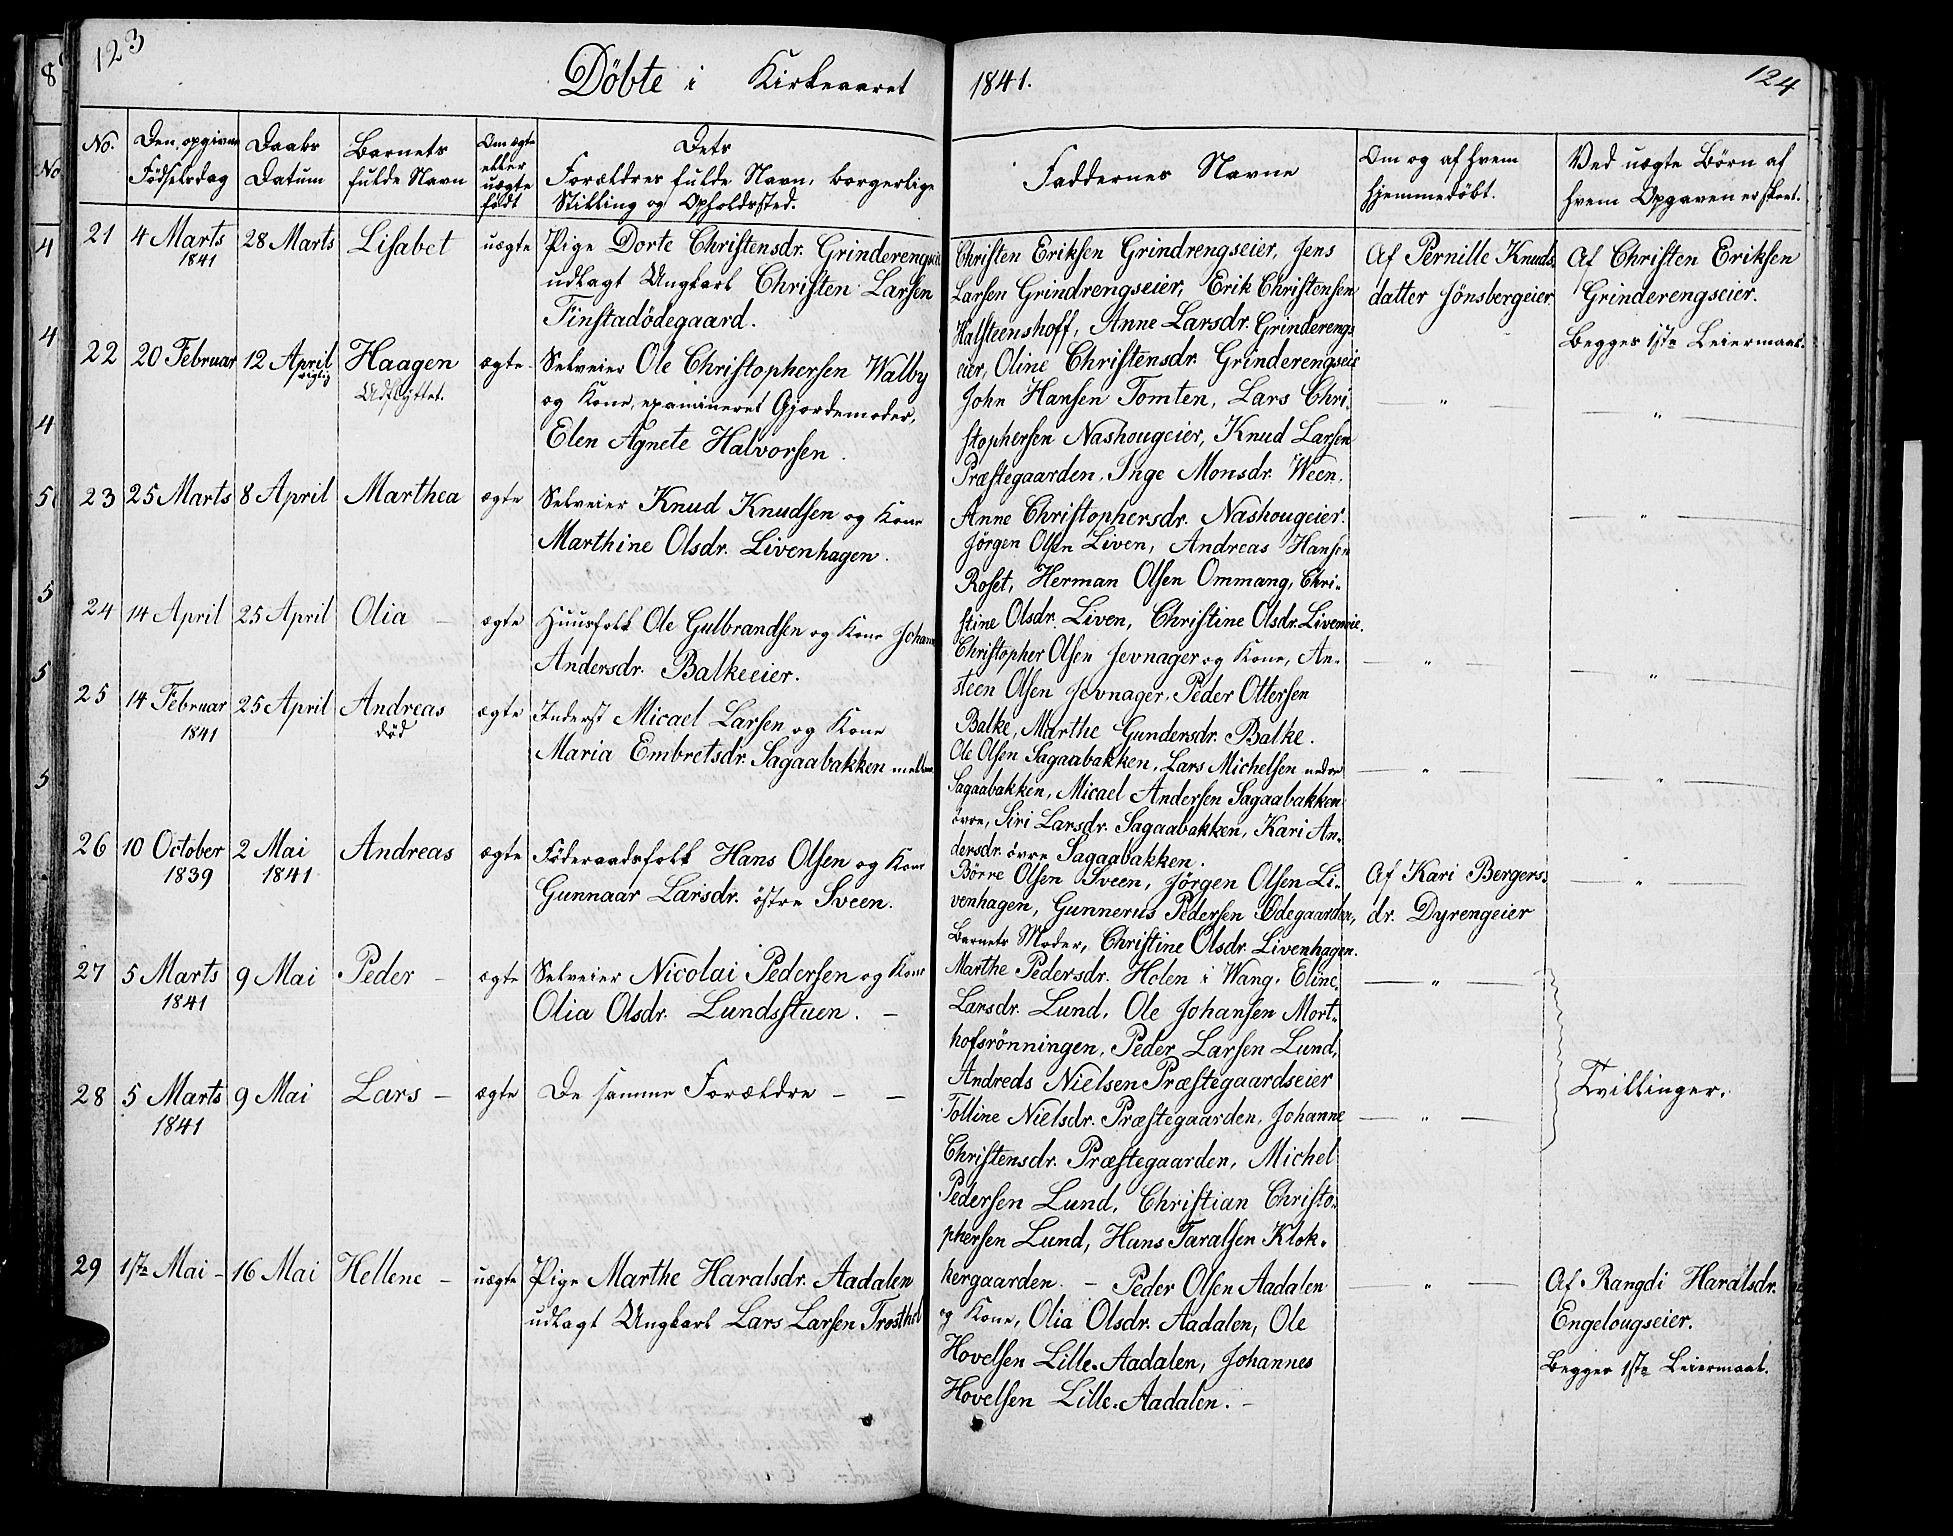 123
Döbte i Kirkeaaret
No.
Den opgivne
Födselsdag
Daabs
Datum
Barnets
fulde Navn
Om ægte
eller
uægte
födt
Dets
Forældres fulde Navn, borgerlige
Stilling og Opholdssted.
21 4 Marts 28 Marts Lisabet uægte Pige Dorte Christensdr. Grinderengseie
1841 udlagt Ungkarl Christen Larsen
Finstadödegaard.
22 20 Februar 12 April Haagen ægte Selveier Ole Christophersen Walby
rigtig Udflyttet. og Kone, examineret Gjordemoder,
Elen Agnete Halvorsen.
23 25 Marts 8 April Marthea ægte Selveier Knud Knudsen og Kone
Marthine Olsdr. Livenhagen.
24 14 April 25 April Olia – ægte Huusfolk Ole Gulbrandsen og Kone Johanne
Andersdr. Balkeeier.
25 14 Februar 25 April Andreas ægte Inderst Micael Larsen og Kone
1841 död Maria Embretsdr. Sagaabakken mellem
26 10 October 2 Mai Andreas ægte Föderaadsfolk Hans Olsen og Kone
1839 1841 Gunnaar Larsdr. östre Sveen.
27 5 Marts 9 Mai Peder – ægte Selveier Nicolai Pedersen og Kone
1841 Olia Olsdr. Lundsstuen. –
28 5 Marts 9 Mai Lars – ægte De samme Forældre – –
1841
29 1ste Mai – 16 Mai Hellene – uægte Pige Marthe Haralsdr. Aadalen
udlagt Ungkarl Lars Larsen Trosthol
1841.
124
Faddernes Navne
Om og af hvem
hjemmedöbt.
Ved uægte Börn af
hvem Opgaven er skeet.
Christen Eriksen Grindrengseier, Jens
Larsen Grindrengseier, Erik Christensen
Halsteenshoff, Anne Larsdr. Grinderengs
eier, Oline Christensdr. Grinderengseie
Af Pernille Knuds
datter Jönsbergeier
Af Christen Eriksen
Grinderengseier.
Begges 1ste Leiermaal.
John Hansen Tomten, Lars Chri-
stophersen Nashougeier, Knud Larsen
Præstegaarden, Inge Monsdr. Ween,
Anne Christophersdr. Nashougeier.
— " —
— " —
Jörgen Olsen Liven, Andreas Hansen
Roset, Herman Olsen Ommang, Chri-
stine Olsdr. Liven, Christine Olsdr. Liveneie.
— " —
Christopher Olsen Jevnager og Kone, An-
steen Olsen Jevnager, Peder Ottersen
Balke, Marthe Gundersdr. Balke.
— " —
— " —
Ole Olsen Sagaabakken, Lars Michelsen nedre
Sagaabakken, Micael Andersen Sagaabakken
övre, Siri Larsdr. Sagaabakken, Kari An-
dersdr. övre Sagaabakken.
— " —
— " —
Börre Olsen Sveen, Jörgen Olsen Li-
venhagen, Gunnerus Pedersen Ödegaarden,
Barnets Moder, Christine Olsdr. Livenhagen.
Af Kari Bergers-
dr. Dyrengeier
— " —
Marthe Pedersdr. Holen i Wang, Eline
Larsdr. Lund, Ole Johansen Mort-
hofsrönningen, Peder Larsen Lund,
Andreas Nielsen Præstegaardseier
— " —
Tvillinger.
Tolline Nielsdr. Præstegaarden, Johanne
Christensdr. Præstegaarden, Michel
Pedersen Lund, Christian Christo-
phersen Lund, Hans Taralsen Klok-
kergaarden. –
— " —
Peder Olsen Aadalen
og Kone, Olia Olsdr. Aadalen, Ole
Hovelsen Lille-Aadalen, Johannes
Hovelsen Lille-Aadalen. –
— " —
Af Rangdi Haralsdr.
Engelougseier.
Begges 1ste Leiermaal.
8
No
4
4
4
5
5
5
5